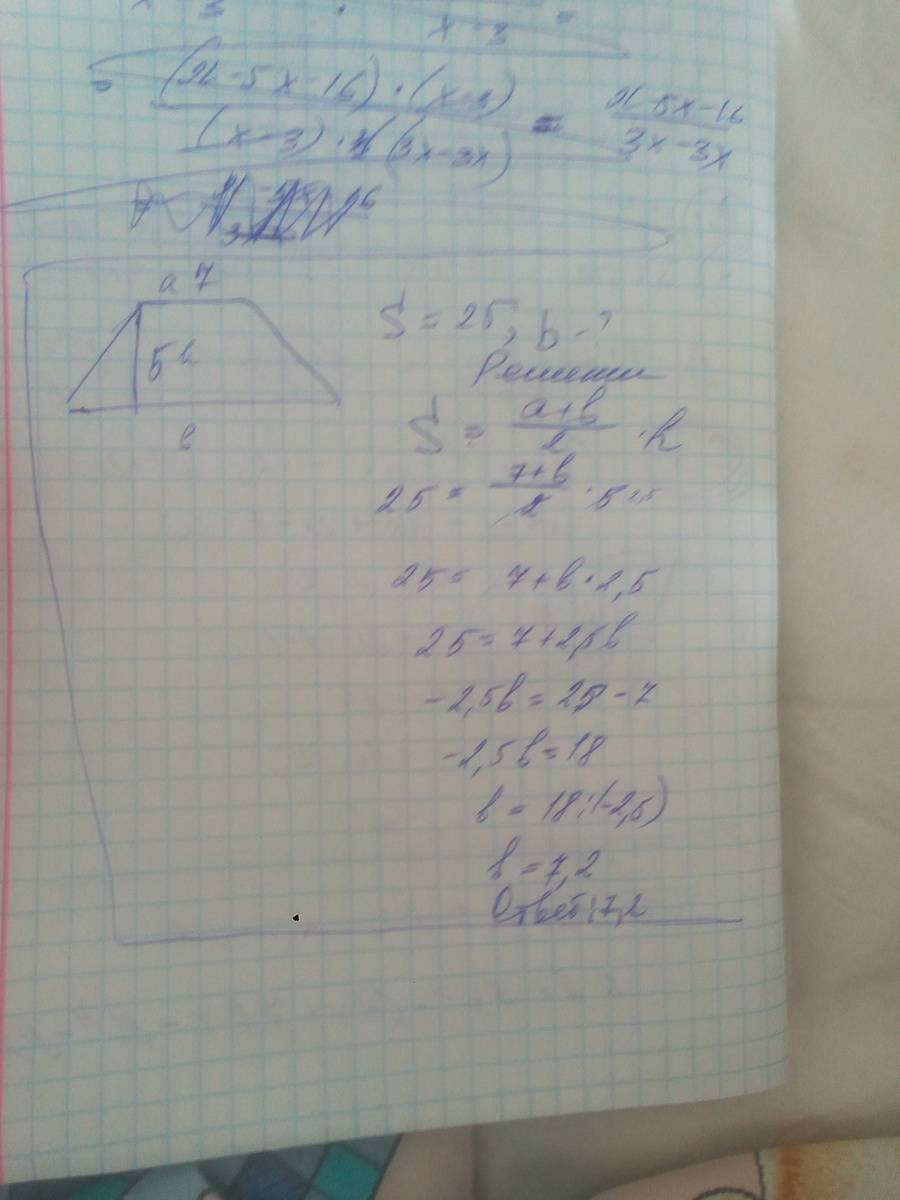 x-3 =
= (21-5x-16)·(x-3) / (x-3)·(3x-3x) = 21-5x-16 / 3x-3x
a 7
5 h
b
S = 25, b-?
Решение
S = a+b / 2 · h
25 = 7+b / 2 · 5
25 = 7+b·2,5
25 = 7+2,5b
-2,5b = 25-7
-2,5b=18
b = 18:(-2,5)
b = 7,2
Ответ: 7,2